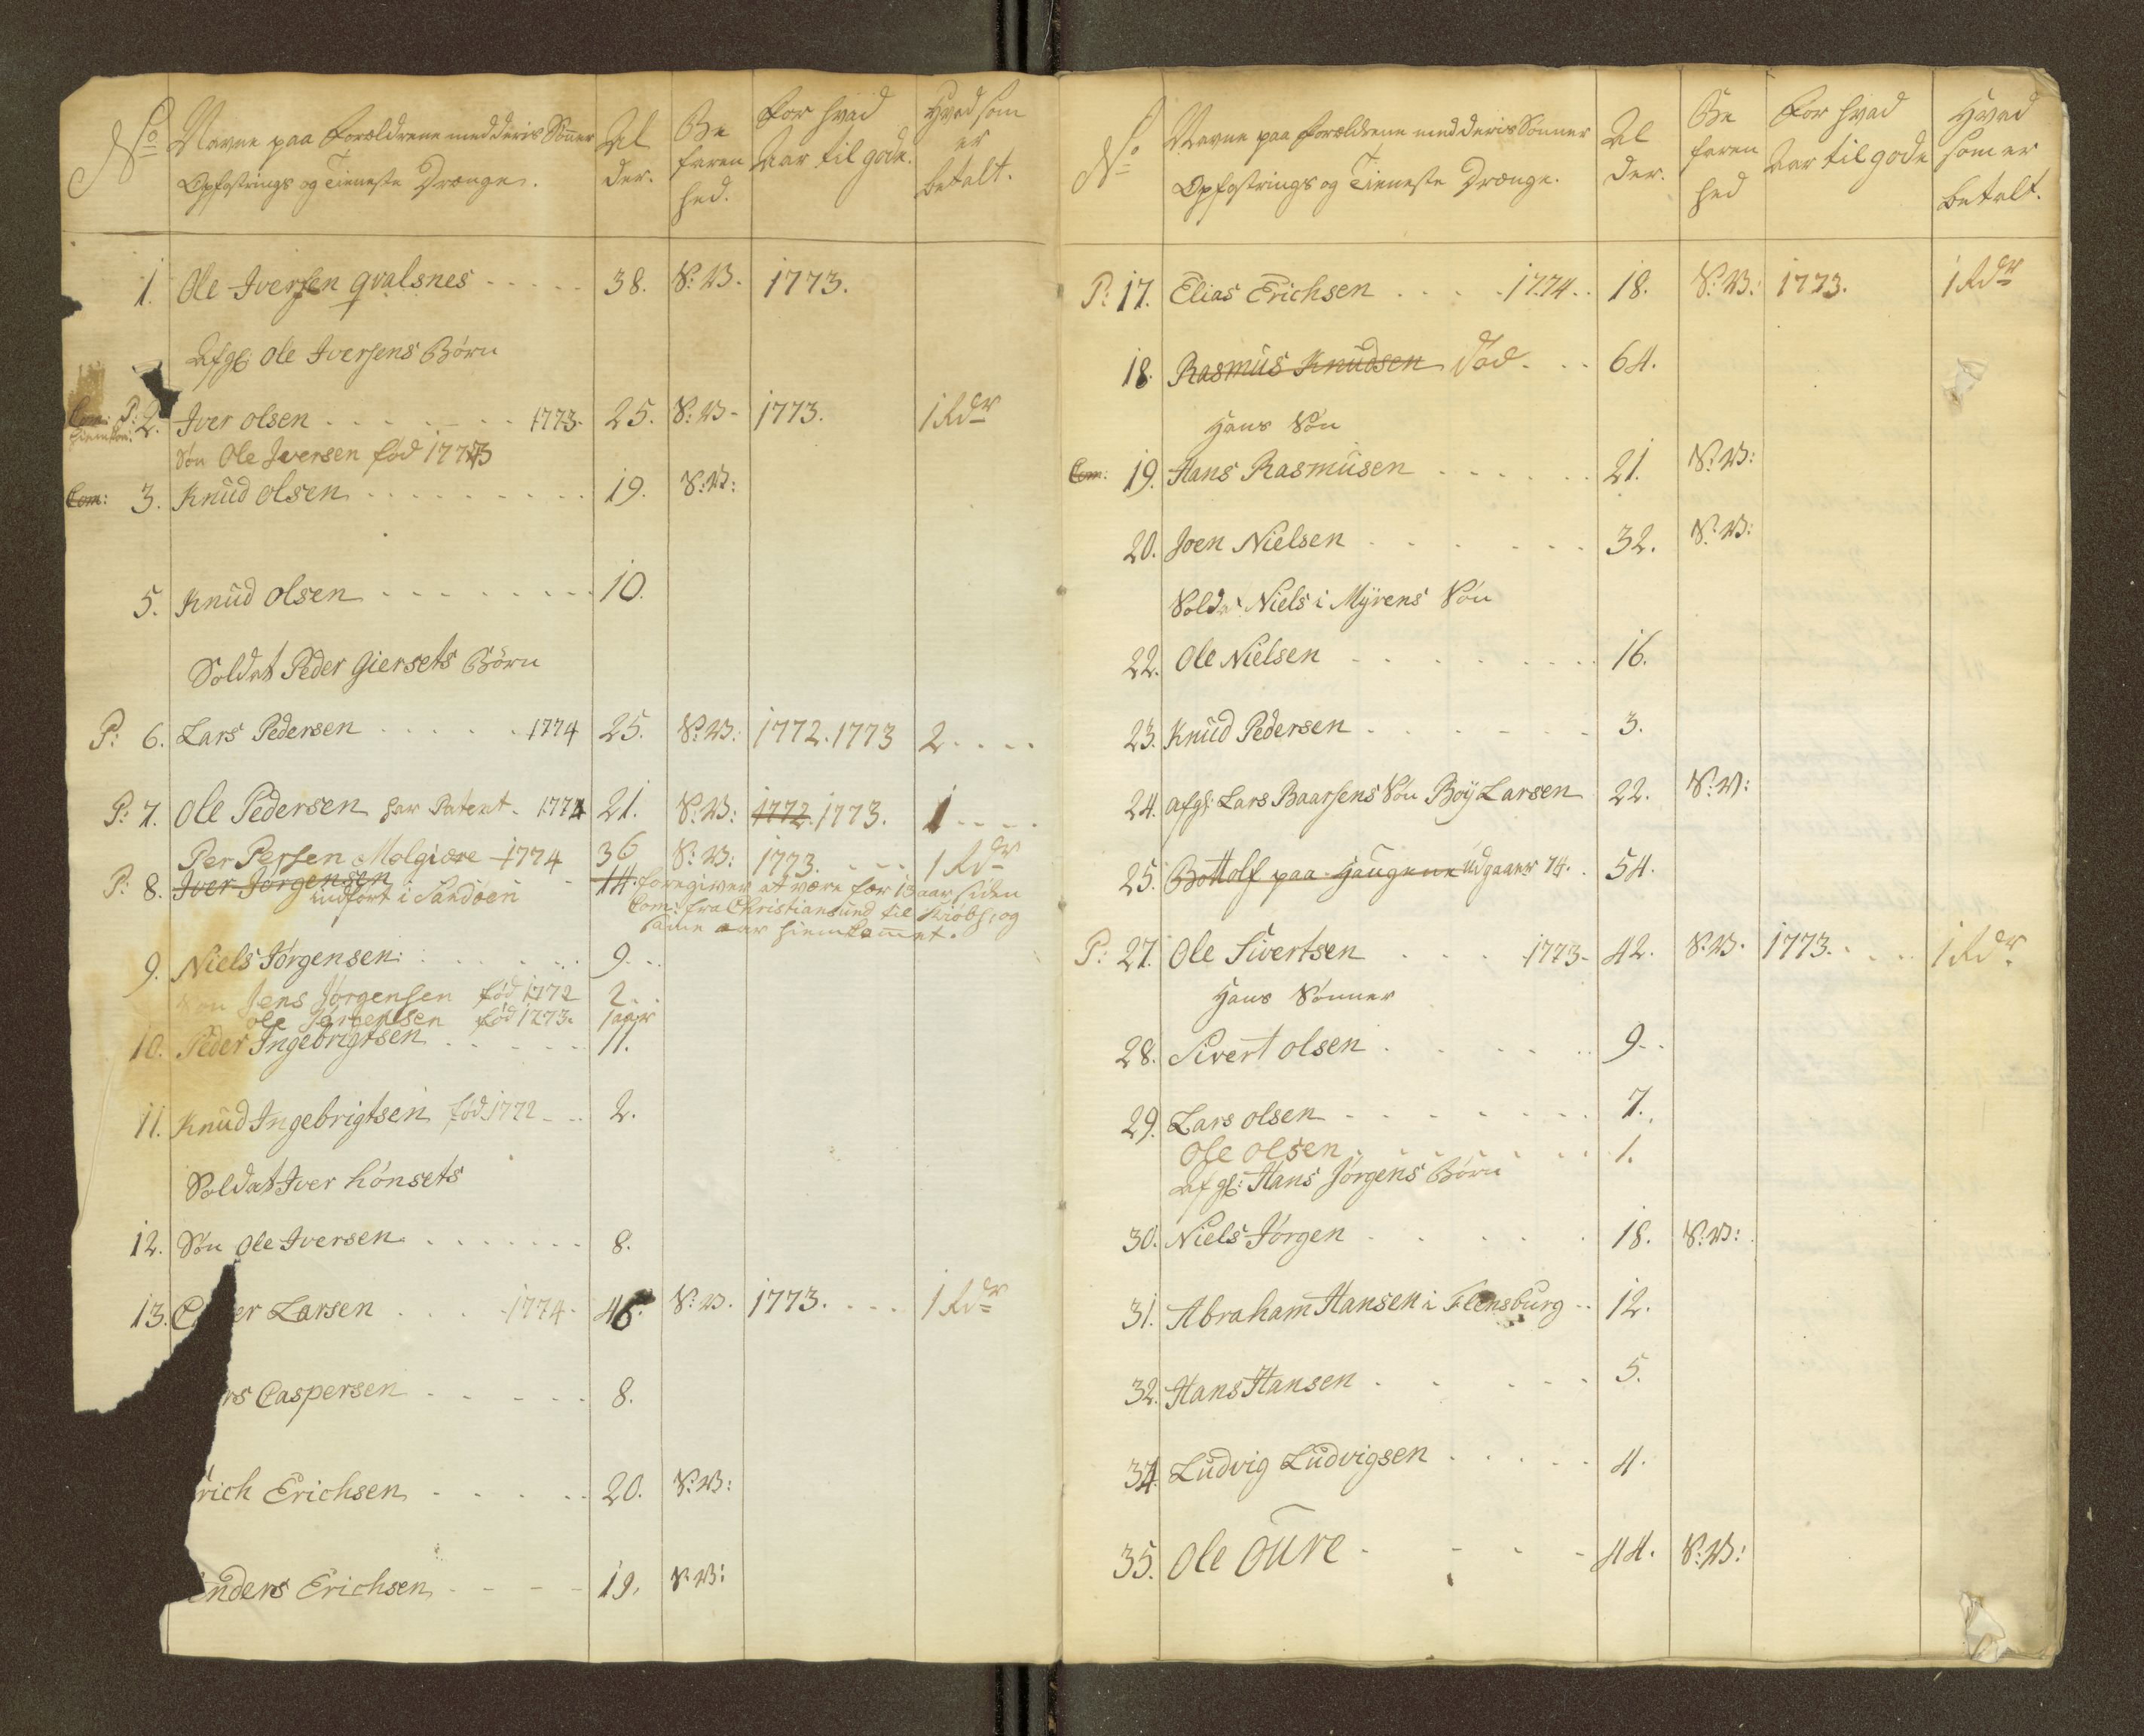 No Navne paa Forældrene med deris Sønner Opfostrings og Tieneste Drænge. Al der. Be faren hed. For hvad Aar til gode. Hvad som er betalt.
1. Ole Iversen qvalsnes - - - - - 38. S: B. 1773.
Afg: Ole Iversens Børn
Com: P: 2. Iver olsen - - - - 1773. 25. S: B- 1773. 1 Rdr
Søn Ole Iversen fød 1773
Com: 3. Knud olsen - - - - 19. S: B:
5. Knud olsen - - - - 10.
Soldat Peder Giersets Børn
P: 6. Lars Pedersen - - - - 1774 25. S: B: 1772. 1773 2 - - -
P: 7. Ole Pedersen har Patent - 1774 21. S: B: 1772. 1773. 1 - - -
Per Persen Molgiore - 1774 36 S: B: 1773. - - - 1 Rdr
P: 8. Iver Jørgensen 14. foregiver at være for 13 aar siden
indført i Sandøen Com: fra Christiansund til Kiøbh: og
same aar hiemkomet.
9. Niels Jørgensen: - - - - 9 - -
Søn Jens Jørgensen fød 1772 2 - -
ole Jørgensen fød 1773. 1 aar
10. Peder Ingebrigtsen - - - - 11.
11. Knud Ingebrigtsen fød 1772 - - 2.
Soldat Iver hønsets
12. Søn Ole Iversen - - - - 8.
13. C er Larsen - - - 1774 - 46. S: B. 1773. - - - 1 Rdr
rs Caspersen - - - - 8.
rich Erichsen - - - - 20. S: B:
Enders Erichsen - - - - 19. S: B:
No Navne paa Forældrene med deris Sønner Opfostrings og Tieneste Drænge. Al der. Be faren hed For hvad Aar til gode Hvad som er betalt.
P: 17. Elias Erichsen - - - - 1774. . 18. S: B: 1773. 1 Rdr
18. Rasmus Knudsen død. - - 64.
Hans Søn
Com: 19. Hans Rasmusen - - - - 21. S: B:
20. Joen Nielsen - - - - 32. S: B:
Sold: Niels i Myrens Søn
22. Ole Nielsen - - - - 16.
23. Knud Pedersen - - - - 3.
24. afg: Lars Baarsens Søn Boy Larsen 22. S: B:
25. Bottolf paa Haugene udgaaer 74. . 54.
P: 27. Ole Sivertsen - - - 1773- 42. S: B. 1773. - - - 1 Rdr.
Hans Sønner
28. Sivert olsen - - - - 9 - -
29. Lars olsen - - - - 7.
Ole olsen - - - - 1.
Afg: Hans Jörgens Børn
30. Niels Jörgen - - - - 18. S: B:
31. Abraham Hansen i Flensburg - - 12.
32. Hans Hansen - - - - 5.
34. Ludvig Ludvigsen - - - - 4.
35. Ole Oure - - - - 44. S: B: